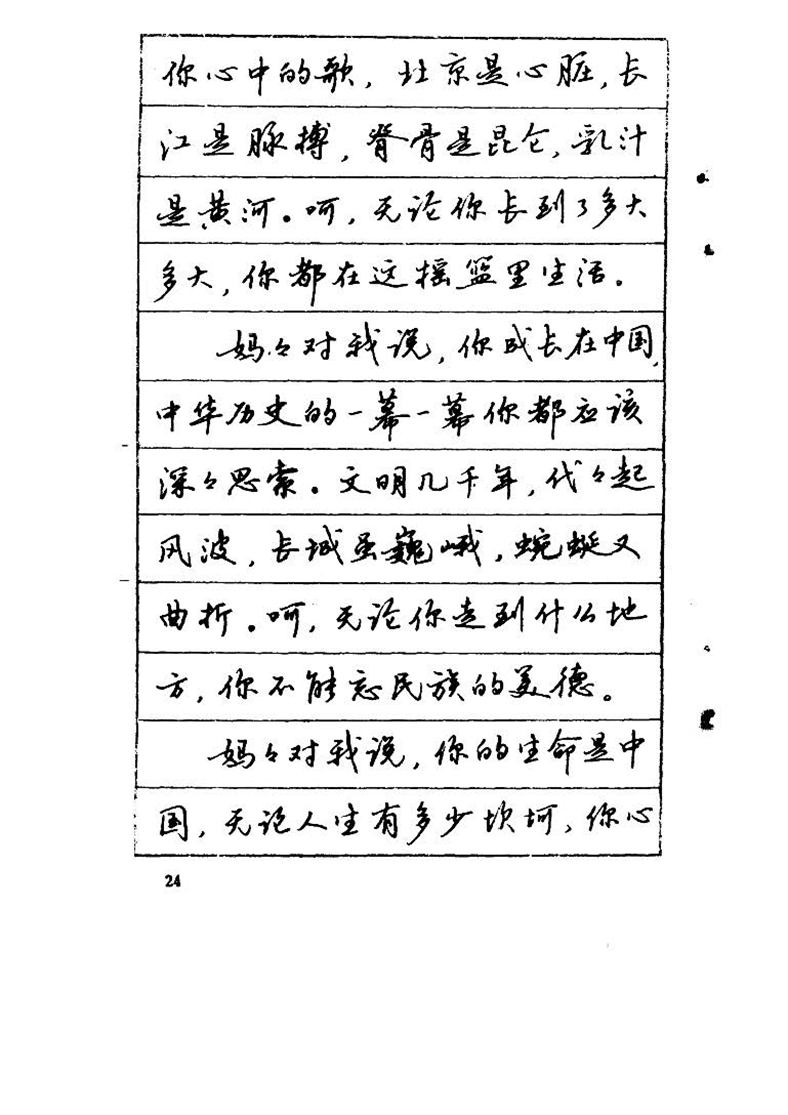 你心中的歌，北京是心脏，长
江是脉搏，脊骨是昆仑，乳汁
是黄河。呵，无论你长到了多大
多大，你都在这摇篮里生活。
妈々对我说，你成长在中国，
中华历史的一幕一幕你都应该
深々思索。文明几千年，代々起
风波，长城虽巍峨，蜿蜒又
曲折。呵，无论你走到什么地
方，你不能忘民族的美德。
妈々对我说，你的生命是中
国，无论人生有多少坎坷，你心
24